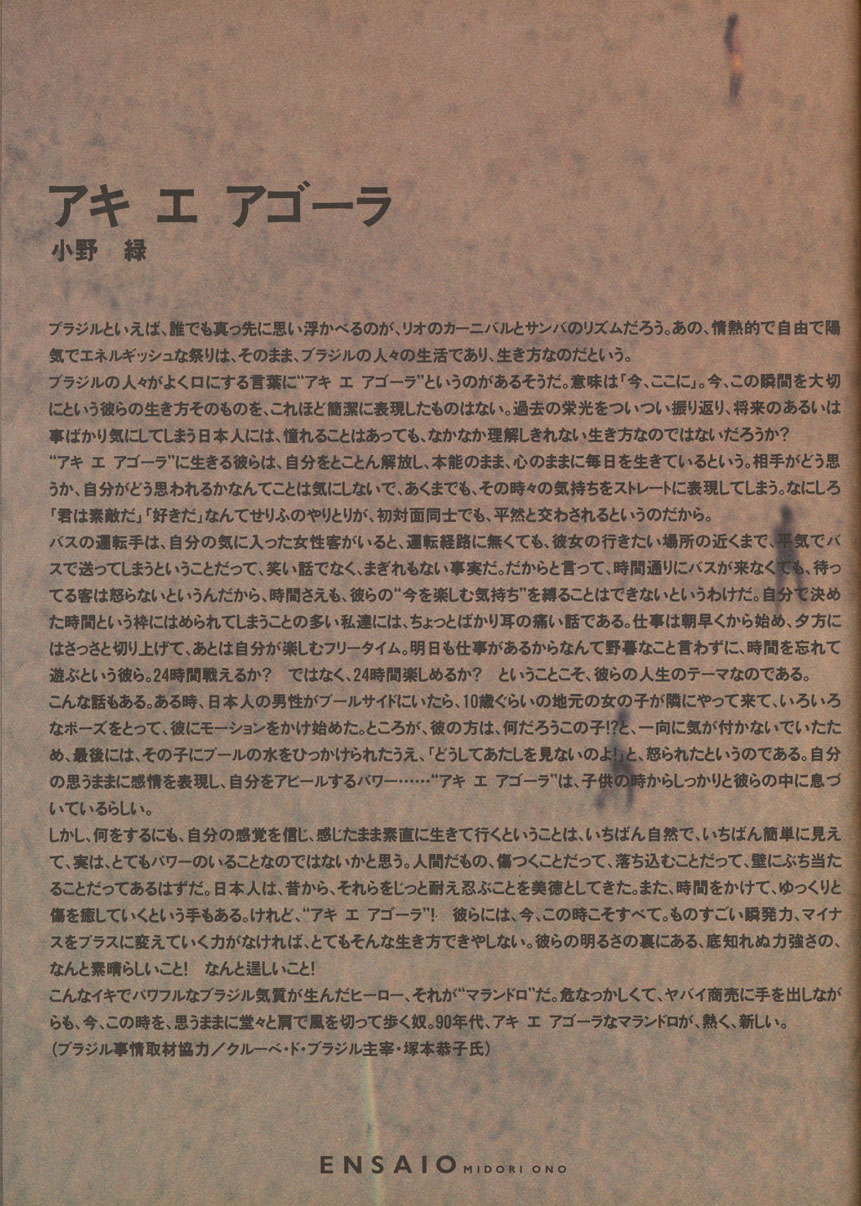 アキ エ アゴーラ
小野　緑
ブラジルといえば、誰でも真っ先に思い浮かべるのが、リオのカーニバルとサンバのリズムだろう。あの、情熱的で自由で陽
気でエネルギッシュな祭りは、そのまま、ブラジルの人々の生活であり、生き方なのだという。
ブラジルの人々がよく口にする言葉に“アキ エ アゴーラ”というのがあるそうだ。意味は「今、ここに」。今、この瞬間を大切
にという彼らの生き方そのものを、これほど簡潔に表現したものはない。過去の栄光をついつい振り返り、将来のあるいは
事ばかり気にしてしまう日本人には、憧れることはあっても、なかなか理解しきれない生き方なのではないだろうか?
“アキ エ アゴーラ”に生きる彼らは、自分をとことん解放し、本能のまま、心のままに毎日を生きているという。相手がどう思
うか、自分がどう思われるかなんてことは気にしないで、あくまでも、その時々の気持ちをストレートに表現してしまう。なにしろ
「君は素敵だ」「好きだ」なんてせりふのやりとりが、初対面同士でも、平然と交わされるというのだから。
バスの運転手は、自分の気に入った女性客がいると、運転経路に無くても、彼女の行きたい場所の近くまで、平気でバ
スで送ってしまうということだって、笑い話でなく、まぎれもない事実だ。だからと言って、時間通りにバスが来なくても、待っ
てる客は怒らないというんだから、時間さえも、彼らの“今を楽しむ気持ち”を縛ることはできないというわけだ。自分で決め
た時間という枠にはめられてしまうことの多い私達には、ちょっとばかり耳の痛い話である。仕事は朝早くから始め、夕方に
はさっさと切り上げて、あとは自分が楽しむフリータイム。明日も仕事があるからなんて野暮なこと言わずに、時間を忘れて
遊ぶという彼ら。24時間戦えるか?　ではなく、24時間楽しめるか?　ということこそ、彼らの人生のテーマなのである。
こんな話もある。ある時、日本人の男性がプールサイドにいたら、10歳ぐらいの地元の女の子が隣にやって来て、いろいろ
なポーズをとって、彼にモーションをかけ始めた。ところが、彼の方は、何だろうこの子!?と、一向に気が付かないでいたた
め、最後には、その子にプールの水をひっかけられたうえ、「どうしてあたしを見ないのよ!」と、怒られたというのである。自分
の思うままに感情を表現し、自分をアピールするパワー……“アキ エ アゴーラ”は、子供の時からしっかりと彼らの中に息づ
いているらしい。
しかし、何をするにも、自分の感覚を信じ、感じたまま素直に生きて行くということは、いちばん自然で、いちばん簡単に見え
て、実は、とてもパワーのいることなのではないかと思う。人間だもの、傷つくことだって、落ち込むことだって、壁にぶち当た
ることだってあるはずだ。日本人は、昔から、それらをじっと耐え忍ぶことを美徳としてきた。また、時間をかけて、ゆっくりと
傷を癒していくという手もある。けれど、“アキ エ アゴーラ”!　彼らには、今、この時こそすべて。ものすごい瞬発力、マイナ
スをプラスに変えていく力がなければ、とてもそんな生き方できやしない。彼らの明るさの裏にある、底知れぬ力強さの、
なんと素晴らしいこと!　なんと逞しいこと!
こんなイキでパワフルなブラジル気質が生んだヒーロー、それが“マランドロ”だ。危なっかしくて、ヤバイ商売に手を出しなが
らも、今、この時を、思うままに堂々と肩で風を切って歩く奴。90年代、アキ エ アゴーラなマランドロが、熱く、新しい。
(ブラジル事情取材協力/クルーベ・ド・ブラジル主宰・塚本恭子氏)
ENSAIO MIDORI ONO